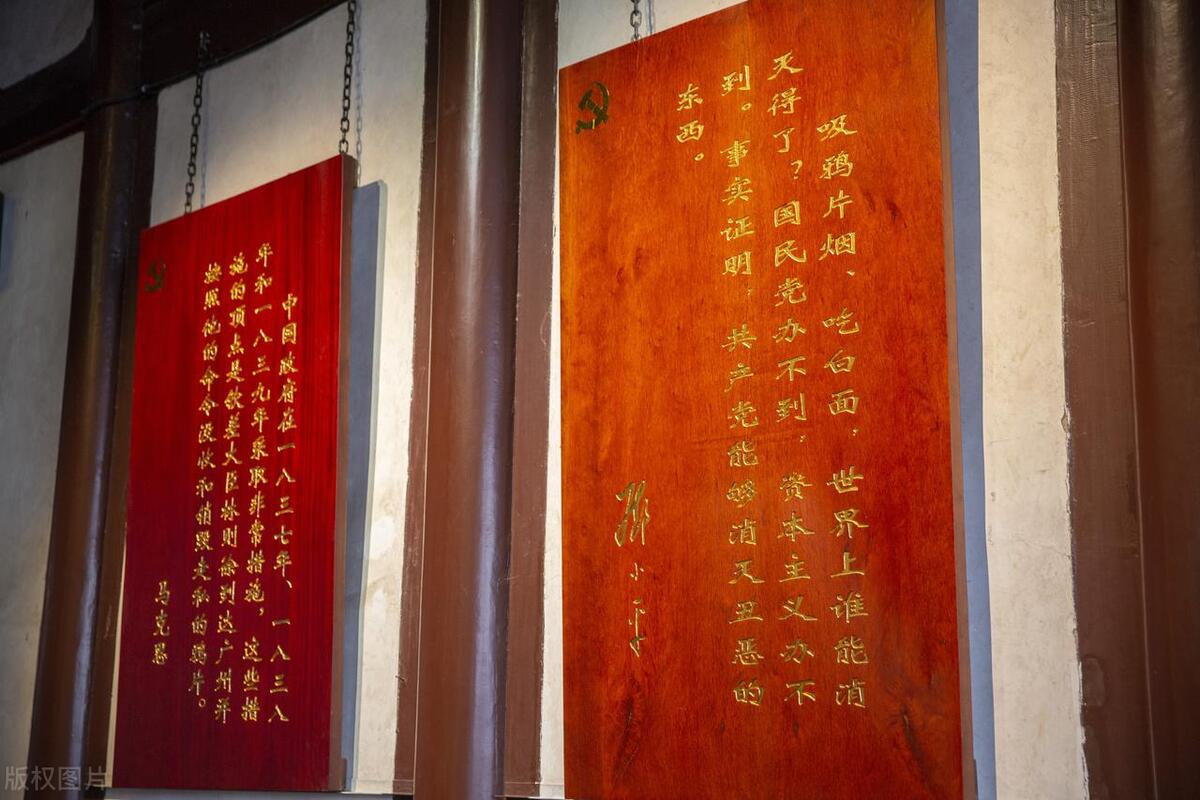 吸鸦片烟、吃白面，世界上谁能消
灭得了？国民党办不到，资本主义办不
到。事实证明，共产党能够消灭丑恶的
东西。
邓小平
中国政府在一八三七年、一八三八
年和一八三九年采取非常措施，这些措
施的顶点是钦差大臣林则徐到达广州并
按照他的命令没收和销毁走私的鸦片。
马克思
版权图片